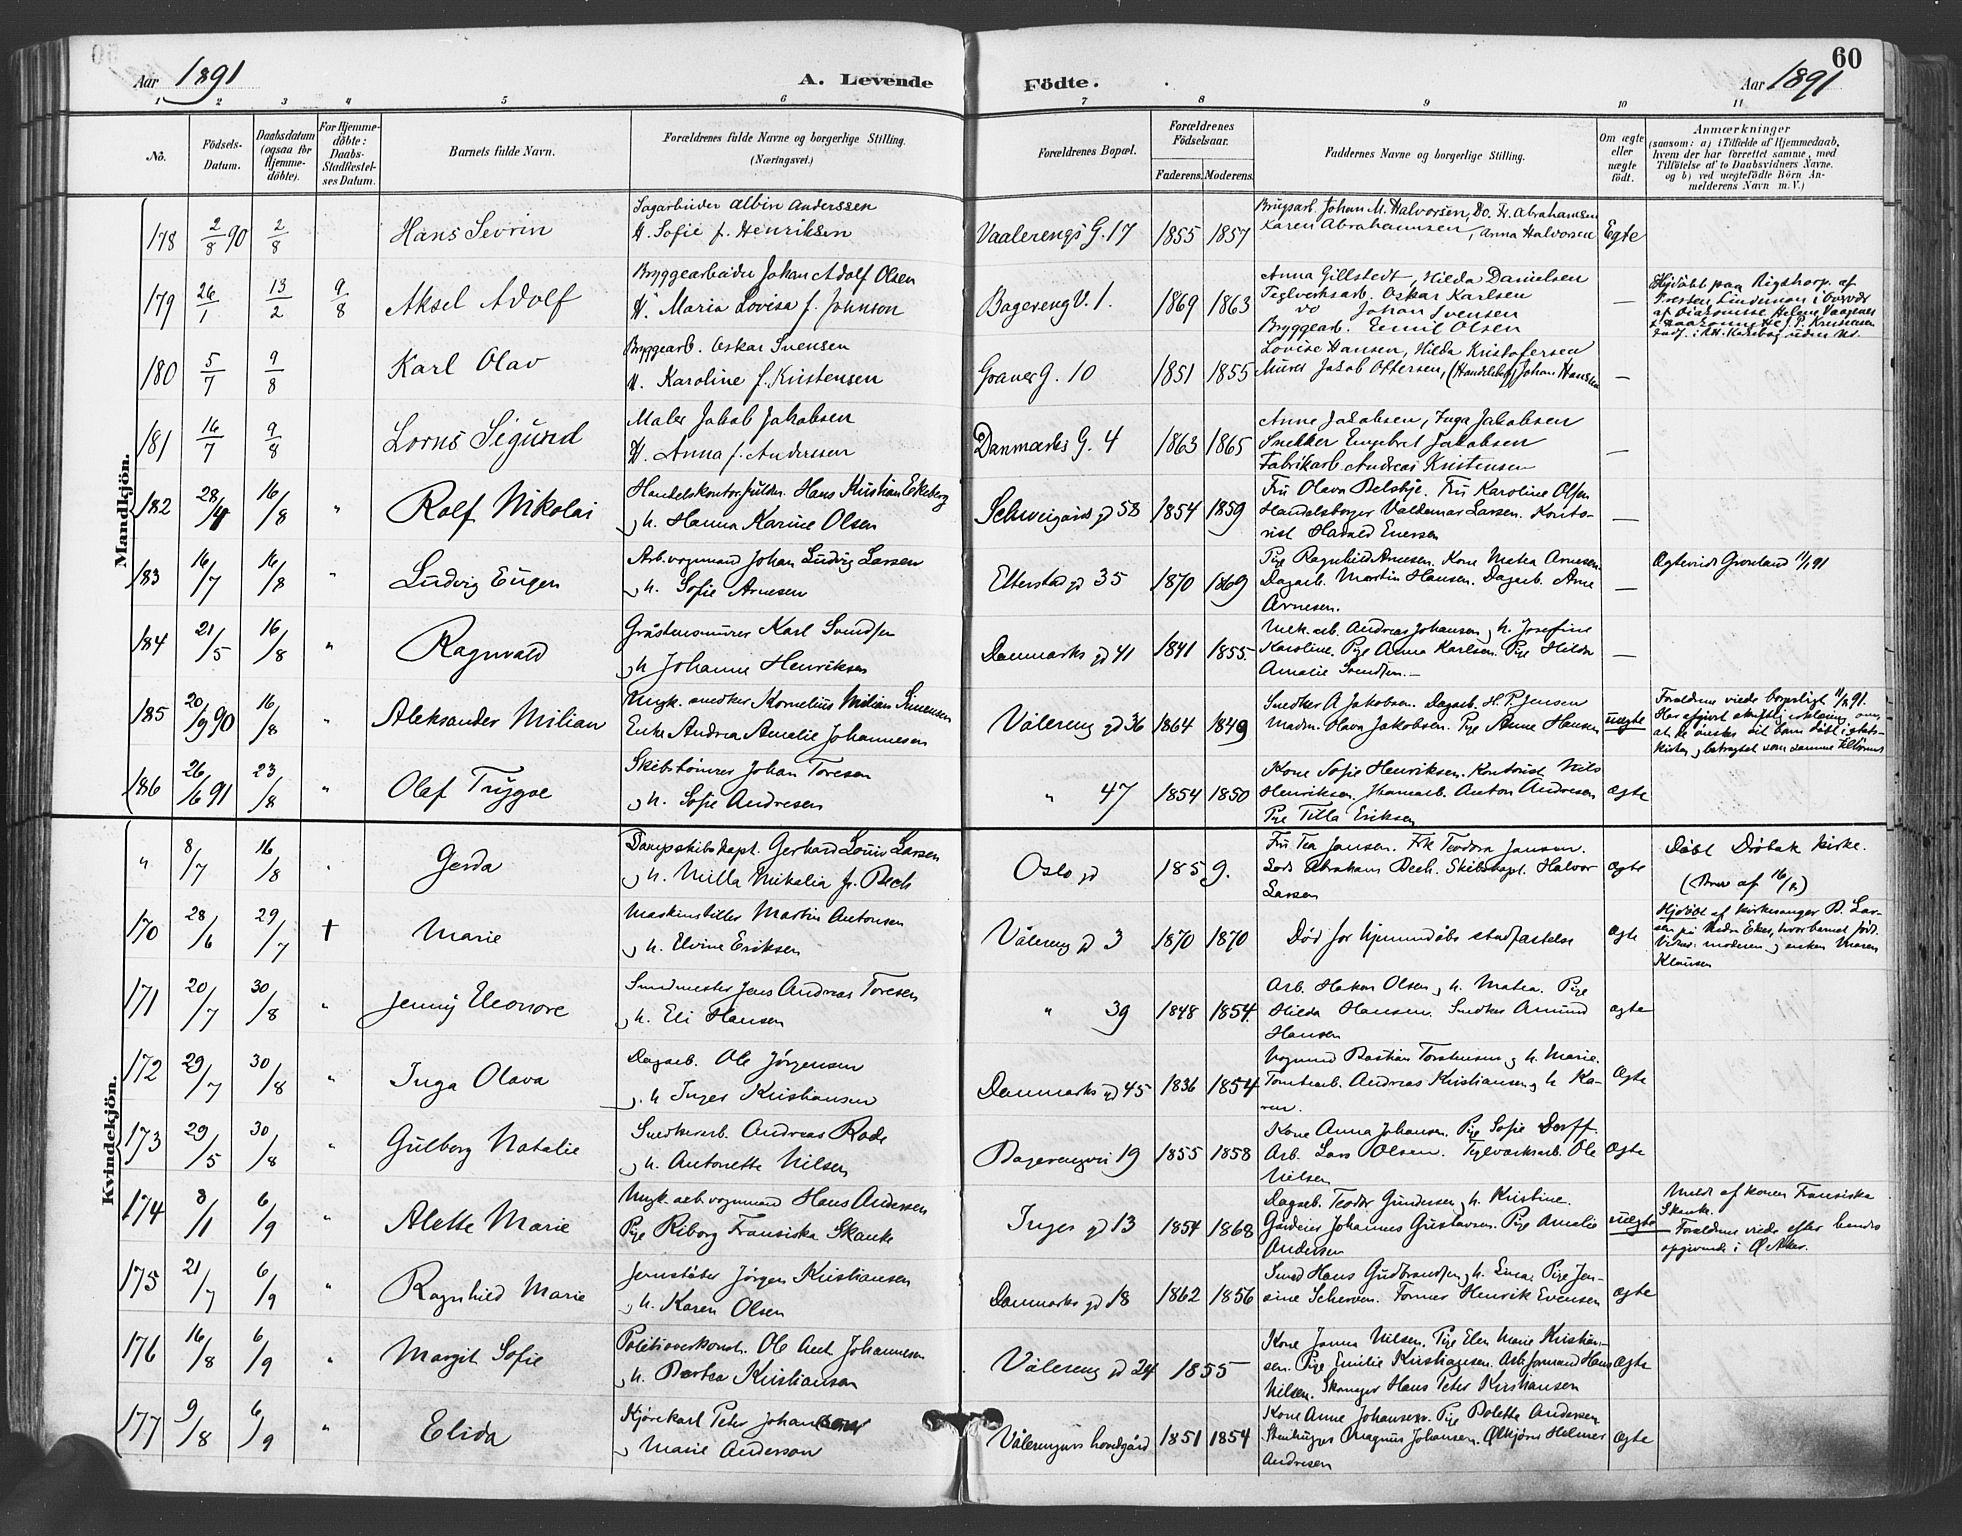 60
Aar 1891
A. Levende
Födte.
Aar 1891
1 2 3 4 5 6 7 8 9 10 11
No.
Födsels-Datum.
Daabsdatum (ogsaa for Hjemmedöbte).
For Hjemmedöbte: Daabs-Stadfæstelses Datum.
Barnets fulde Navn.
Forældrenes fulde Navne og borgerlige Stilling. (Næringsvei.)
Forældrenes Bopæl.
Forældrenes Födselsaar.
Faderens. Moderens.
Faddernes Navne og borgerlige Stilling.
Om ægte eller uægte födt.
Anmærkninger
(saasom: a) i Tilfælde af Hjemmedaab, hvem der har forrettet samme, med Tilföielse af to Daabsvidners Navne. og b) ved uægtefödte Börn Anmelderens Navn m. V.)
Mandkjön.
178 2/8 90 2/8 Hans Sevrin
Sagarbeider Albin Anderssen
H. Sofie f. Henriksen
Vaalerengs G. 17 1855 1857
Brugsarb. Johan M. Halvorsen, Do. Fr. Abrahamsen
Karen Abrahamsen, Anna Halvorsen Egte
179 26/1 13/2 9/8 Aksel Adolf
Bryggearbeider Johan Adolf Olsen
H. Maria Lovisa f. Johnson
Bagereng V. 1. 1869 1863
Anna Gillstedt, Hilda Danielsen
Teglverksarb. Oskar Karlsen
do Johan Svensen
Bryggearb. Emil Olsen
—
180 5/7 9/8 Karl Olav
Bryggearb. Oskar Svensen
H. Karoline f. Kristensen
Grøner G. 10 1851 1855
Lovise Hansen, Hilda Kristofersen
Murer Jakob Ottersen, (Handelsbog) Johan Hansen —
181 16/7 9/8 Lorns Sigurd
Maler Jakob Jakobsen
H. Anna f. Anderssen
Danmarks G. 4 1863 1865
Anne Jakobsen, Inga Jakobsen
Snekker Engebret Jakobsen
Fabrikarb. Andreas Kristensen
—
182 28/4 16/8 " Rolf Nikolai
Handelskontorfuldm. Hans Kristian Ekeberg
og h. Hanna Karine Olsen
Schweigårds gd 58 1854 1859
Fru Olava Belsbye. Fru Karoline Olsen
Handelsborger Valdemar Larsen. Kontorist Harald Enersen
—
183 16/7 16/8 " Ludvig Eugen
Arb. vognmand Johan Ludvig Larsen
og h. Sofie Arnesen
Etterstad gd 35 1870 1869
Pige Ragnhild Arnesen. Kone Matea Arnesen
Dagarb. Martin Hansen. Dagarb. Arne
Arnesen.
—
Ægteviede Grønland 11/1 91
184 21/5 16/8 " Ragnvald
Gråstensmurer Karl Svendsen
og h. Johanne Henriksen
Danmarks gd 41 1841 1855.
Mek. arb. Andreas Johansen og h. Josefine
Karoline. Pige Anna Karlsen. Pige Hilda
Amalie Svendsen.
—
185 20/9 90 16/8 " Aleksander Milian
Ungk. snedker Kornelius Milian Simensen
Enke Andrea Amalie Johannesen
Vålereng gd 36 1864 1849
Snedker A Jakobsen. Dagarb. H. P. Jensen
Madm. Hava Jakobsen. Pige Anne Hansen uægte
Forældrene viede borgerligt 11/8 91.
Har afgivet skriftlig erklæring om
at de ønsker sit barn døbt i statskirken
186 26/6 91 23/8 " Olaf Trygve
Skibstømrer Johan Toresen
og h. Sofie Andresen
" 47 1854 1850
Kone Sofie Henriksen. Kontorist Nils
Henriksen. Anton Andresen
Pige Tilla Eriksen
ægte
Kvindekjön.
" 8/7 16/8 " Gerda
Dampskibskapt. Gerhard Louis Larsen
og h. Milla Mikalia f. Bech
Oslo gd 1859.
Fru Tea Jansen. Frk Teodora Jansen.
Lods Abraham Bech. Skibskapt. Halvor
Larsen
ægte
Døbt Drøbak kirke.
(Brev af 16/8)
170 28/6 29/7 † Marie
Maskinstiller Martin Antonsen
og h. Elvine Eriksen
Vålereng gd 3 1870 1870
Død før hjemmedåbs stadfæstelse
ægte
Hjdøbt af kirkesanger B. Larsen
på Nedre Eker, hvor barnet født.
Vidner: moderen og enken Maren
Klausen
171 20/7 30/8 " Jenny Eleonore
Smedmester Jens Andreas Toresen
og h. Eli Hansen
" 39 1848 1854.
Arb. Hakon Olsen og h. Matea. Pige
Hilda Hansen. Snedker Amund
Hansen
ægte
172 29/7 30/8 " Inga Olava
Dagarb. Ole Jørgensen
og h. Inger Kristiansen
Danmarks gd 45 1836 1854
Vognmand Bastian Torstensen og h. Marie.
Tomtearb. Andreas Kristiansen og h Karen.
Ægte
173 29/5 30/8 " Gulborg Natalie
Snedkerarb. Andreas Rode
og h. Antonette Nilsen
Bagerengvei 19 1855 1858
Kone Anna Johansen. Pige Sofie Dorff.
Arb. Lars Olsen. Teglverksarb. Ole
Nilsen
Ægte
174 8/1 6/9 " Alette Marie
Ungk. arb. vognmand Hans Andersen
Pige Riborg Fransiska Skanke
Inges gd 13 1854 1868
Dagarb. Teodor Gundersen og h. Kristine.
Gårdeier Johannes Gustavsen. Pige Amalie
Andersen
uægte
Meldt af konen Fransiska
Skanke.
Forældrene viede efter hendes
opgivende i Ø Aker.
175 21/7 6/9 " Ragnhild Marie
Jernstøber Jørgen Kristiansen
og h. Karen Olsen
Danmarks gd 18 1862 1856
Smed Hans Gudbrandsen og h. Lina. Pige Jensine
Scherven. Former Henrik Evensen
ægte
176 16/8 6/9 " Margit Sofie
Politioverkonst. Ole Ant. Johannesen
og h. Bertea Kristiansen
Vålereng gd 24 1855
Kone Janna Nilsen. Pige Elen Marie Kristiansen.
Pige Emilie Kristiansen. Arbformand Hans
Nilsen. Skomager Hans Peter Kristiansen
ægte
177 9/8 6/9 " Elida
Kjørekarl Peter Johansson
og Marie Anderson
Vålerengens hovedgård 1851 1854
Kone Anne Johansen. Pige Bolette Andersen
Stenhugger Magnus Johansen. Ølkjører Helmer
Andresen
ægte